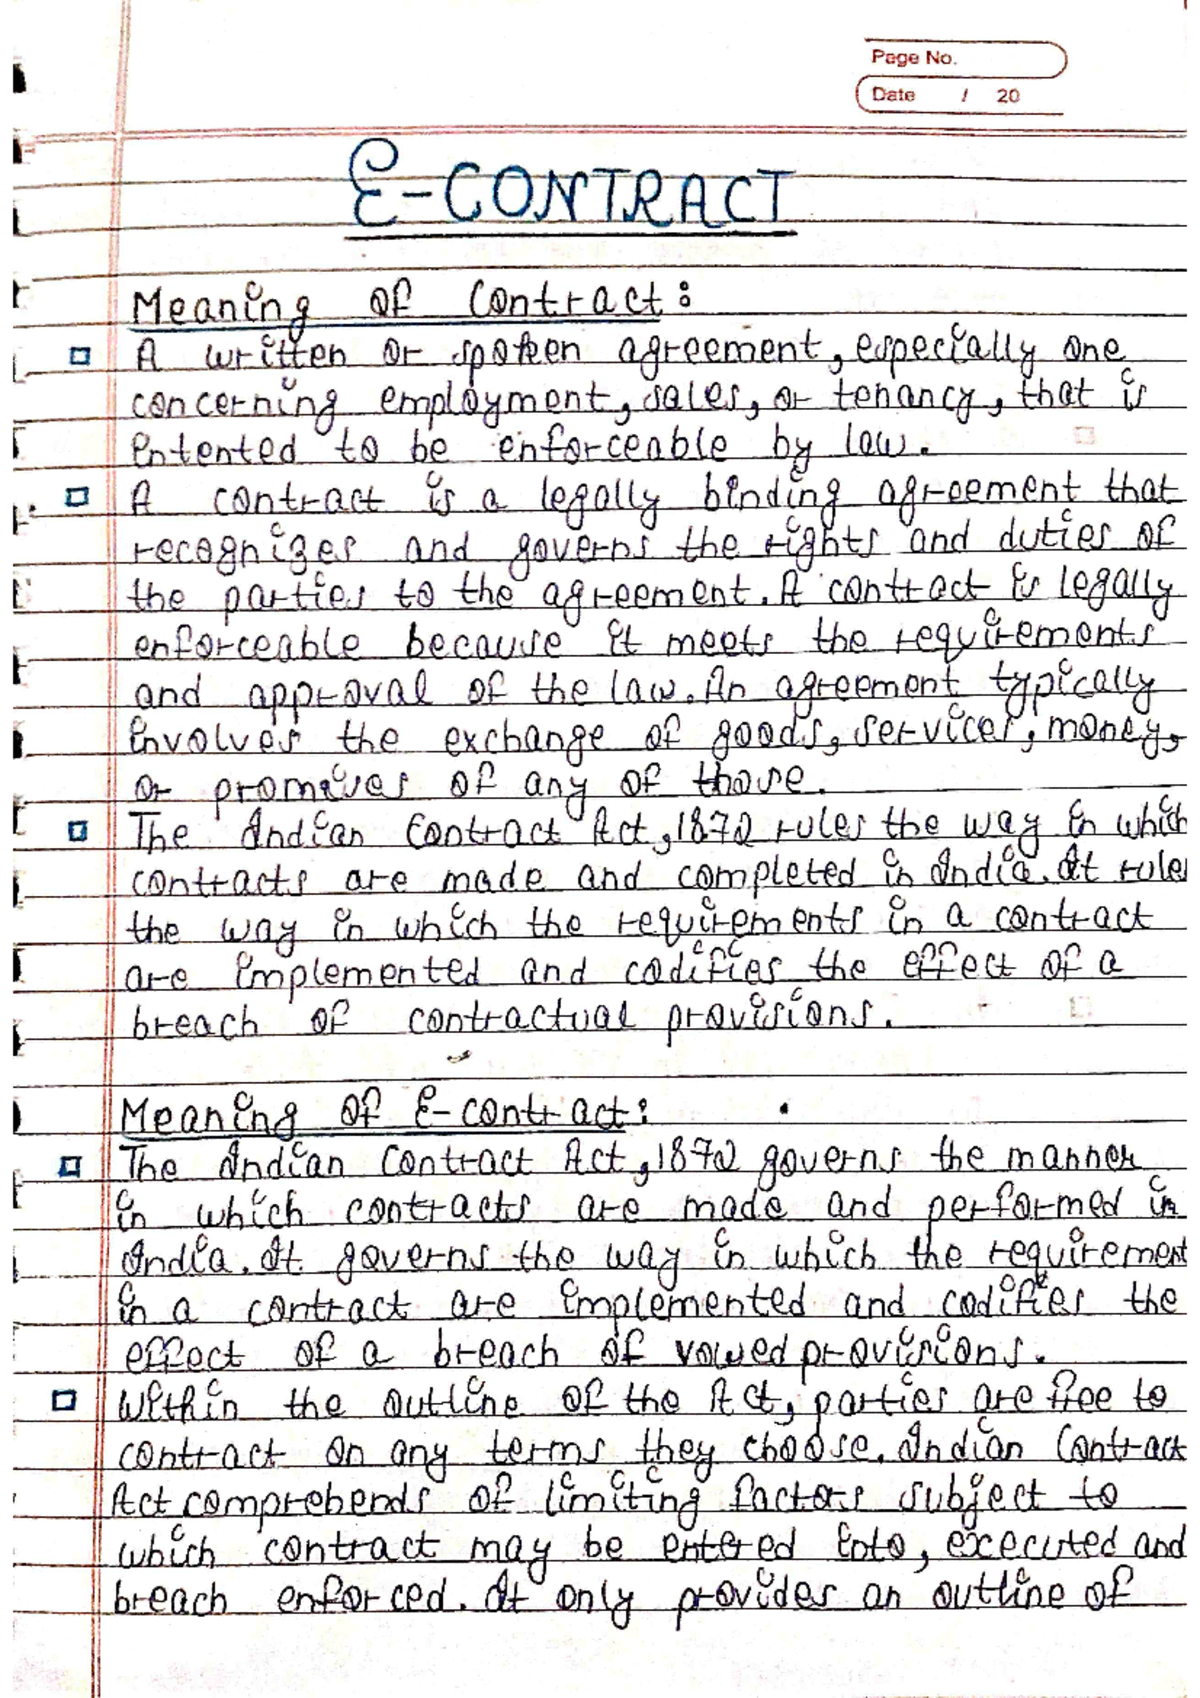 Page No.
Date / 20
E-CONTRACT
Meaning of Contract:
A written or spoken agreement, especially one
concerning employment, sales, or tenancy, that is
intented to be enforceable by law.
A contract is a legally binding agreement that
recognizes and governs the rights and duties of
the parties to the agreement. A contract is legally
enforceable because it meets the requirements
and approval of the law. An agreement typically
involves the exchange of goods, services, money,
or promises of any of those.
The Indian Contract Act, 1872 rules the way in which
contracts are made and completed in India. It rules
the way in which the requirements in a contract
are implemented and codifies the effect of a
breach of contractual provisions.
Meaning of E-contract:
The Indian Contract Act, 1872 governs the manner
in which contracts are made and performed in
India. It governs the way in which the requirement
in a contract are implemented and codifies the
effect of a breach of vowed provisions.
Within the outline of the Act, parties are free to
contract on any terms they choose. Indian Contract
Act comprehends of limiting factors subject to
which contract may be entered into, executed and
breach enforced. It only provides an outline of